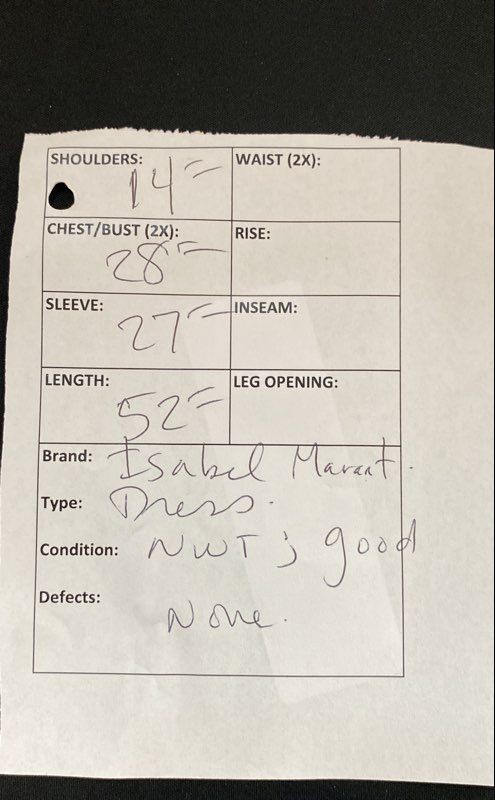 SHOULDERS: 14" WAIST (2X):
CHEST/BUST (2X): 28" RISE:
SLEEVE: 27" INSEAM:
LENGTH: 52" LEG OPENING:
Brand: Isabel Marant.
Type: Dress.
Condition: NWT; good
Defects:
None.